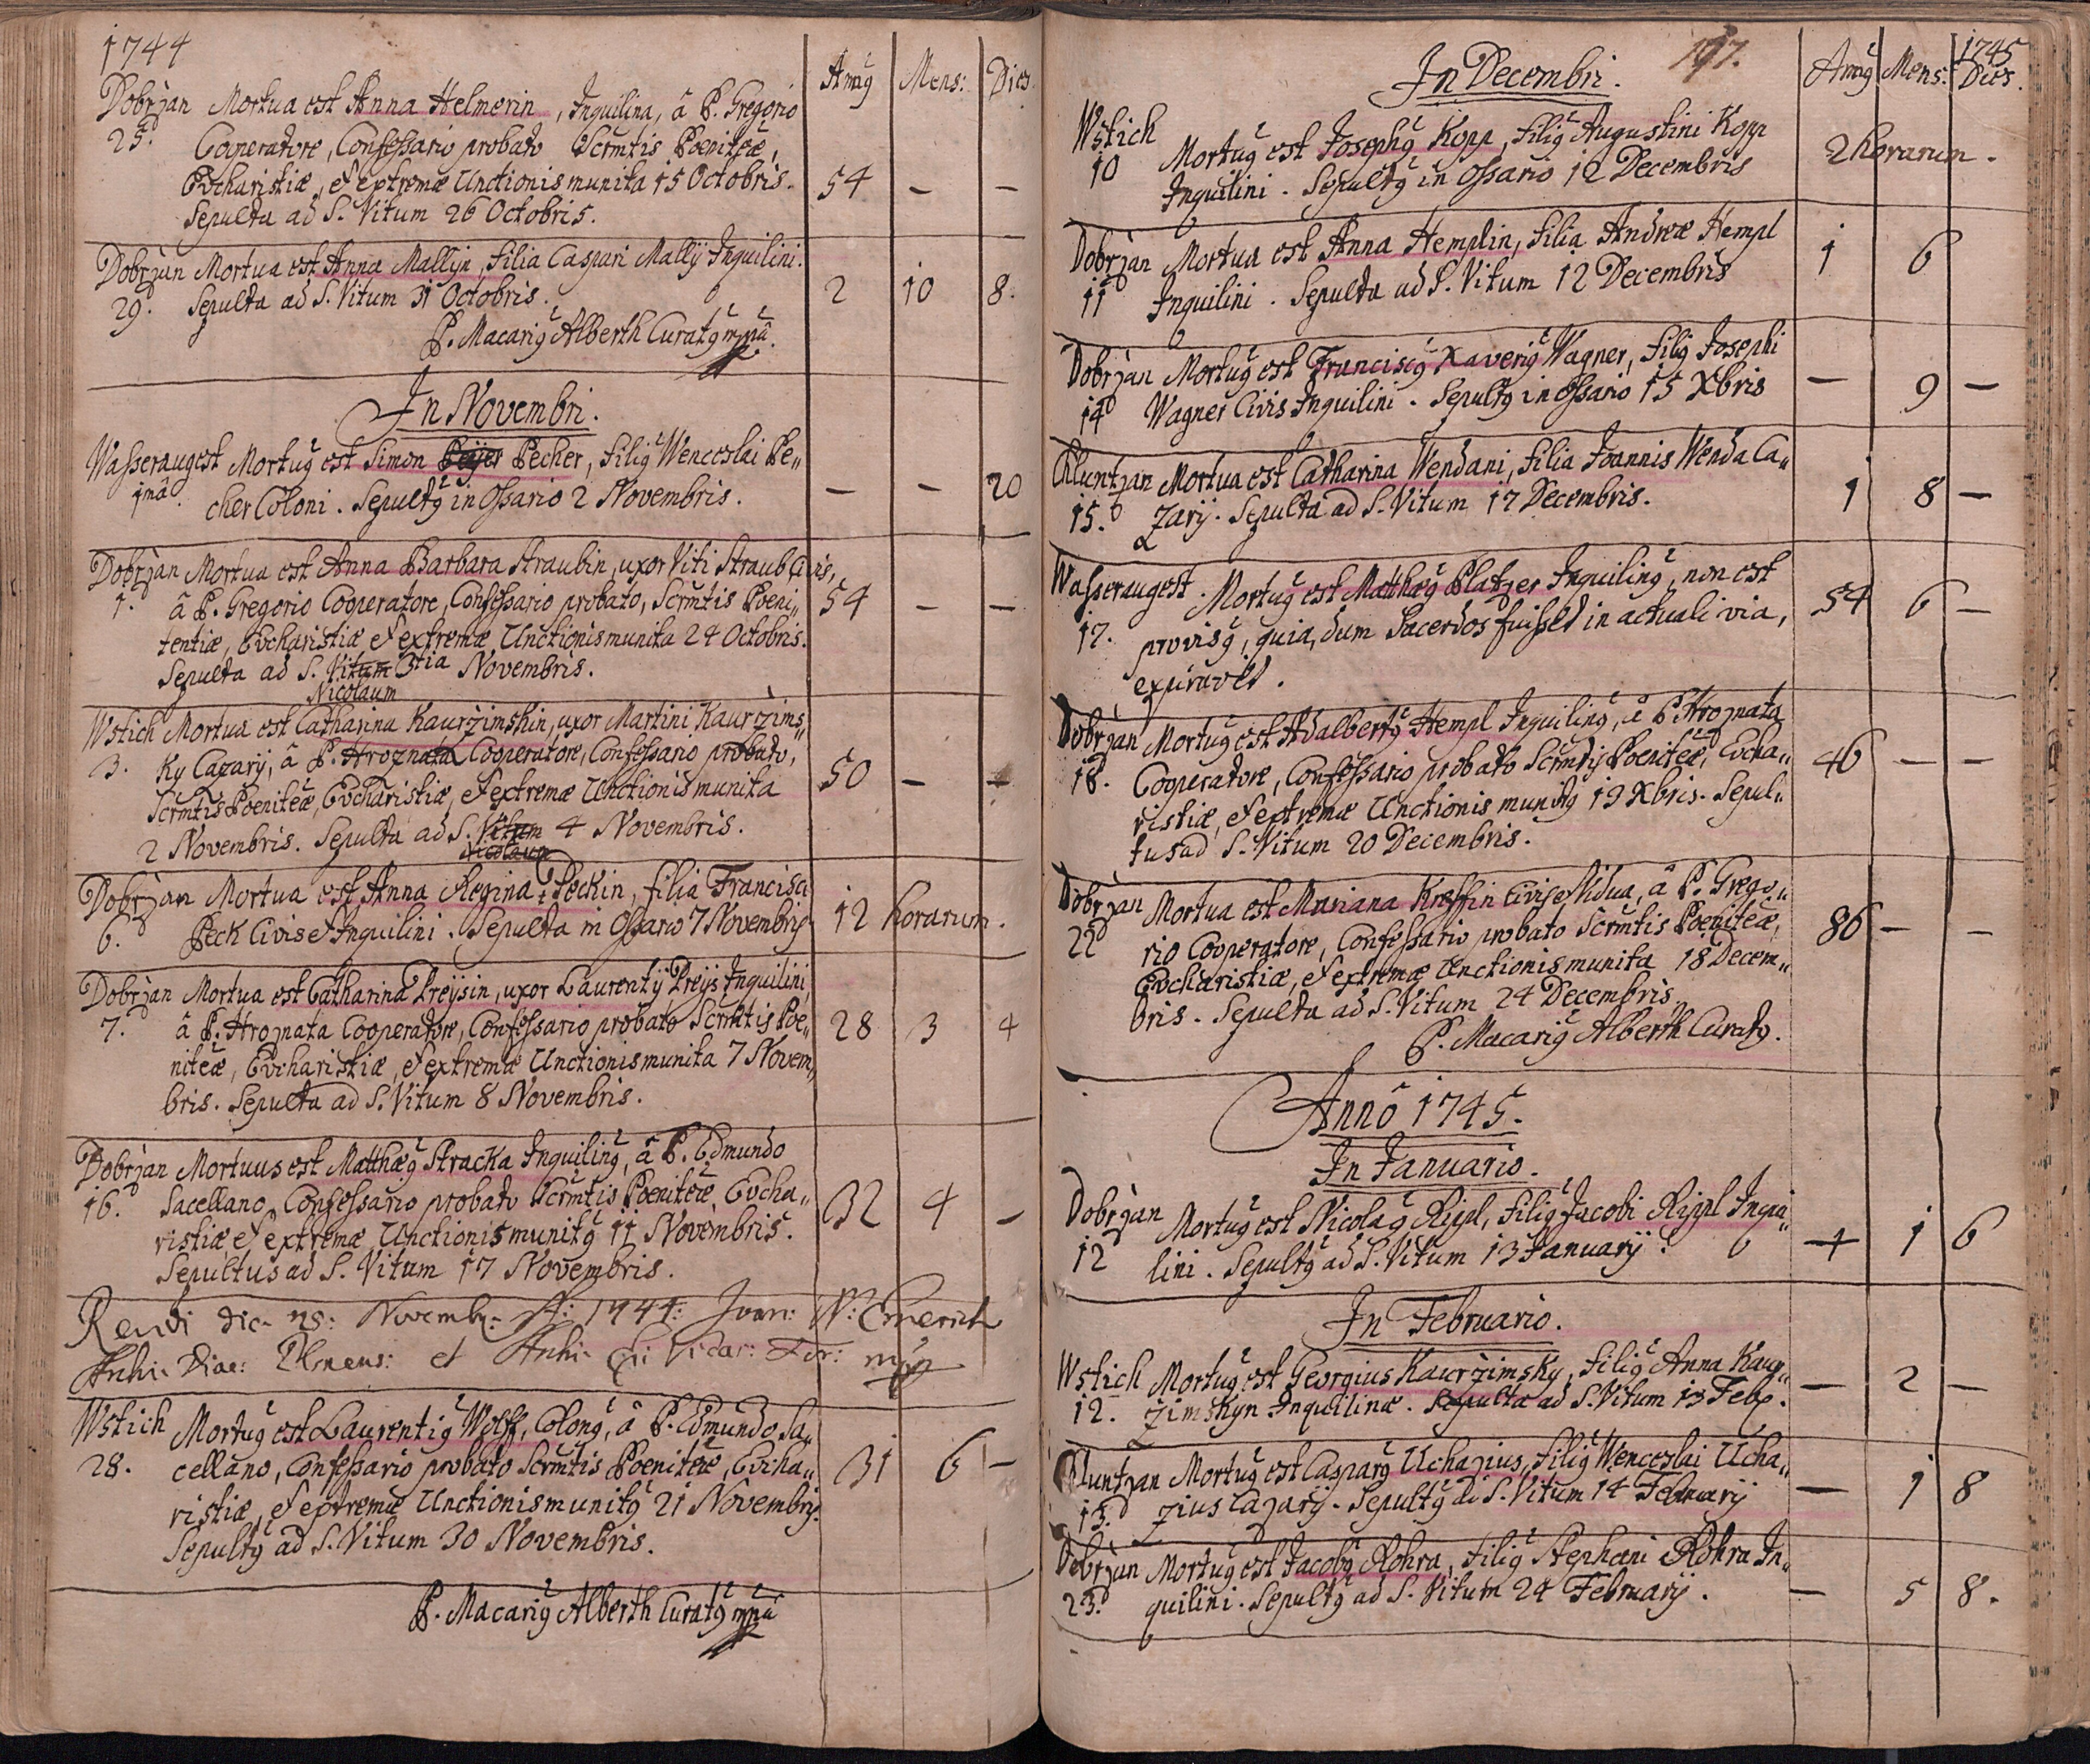 1744
Annꝰ Mens: Dies.
Dobrzan Mortua est Anna Helmerin, Inquilina, â P. Gregorio
25. Cooperatore, Confessario probato Scrmtis Poeniteæ,
Eucharistiæ, et extremæ Unctionis munita 15 Octobris. 54 — —
Sepulta ad S. Vitum 26 Octobris.
Dobrzan Mortua est Anna Mallyn, filia Caspari Mally Inquilini.
29. Sepulta ad S. Vitum 31 Octobris. 2 10 8.
P. Macariꝰ Alberth Curatꝰ mpâ.
In Novembri.
Wasseraugest Mortuꝰ est Simon Peijer Pecher, filiꝰ Wenceslai Pe„
1mâ. cher Coloni. Sepultꝰ in Ossario 2 Novembris. — — 20
Dobrzan Mortua est Anna Barbara Straubin, uxor Viti Straub Civis,
1. â P. Gregorio Cooperatore, Confessario probato, Scrmtis Poeni„ 54 — —
tentiæ, Eucharistiæ et extremæ Unctionis munita 24 Octobris.
Sepulta ad S. Vitum 3tia Novembris.
Nicolaum
Wstich Mortua est Catharina Kaurzimskin, uxor Martini Kaurzims„
3. ky Cazarij, â P. Hroznata Cooperatore, Confessario probato,
Scrmtis Poeniteæ, Eucharistiæ, et extremæ Unctionis munita 50 — —
2 Novembris. Sepulta ad S. Vitum 4 Novembris.
Nicolaum
Dobrzan Mortua est Anna Regina Peckin, filia Francisci
6. Peck Civis et Inquilini. Sepulta in Ossario 7 Novembris. 12 horarum.
Dobrzan Mortua est Catharina Preysin, uxor Laurentij Preijs Inquilini,
7. â P. Hroznata Cooperatore, Confessario probato Scrmtis Poe„ 28 3 4
niteæ, Eucharistiæ, et extremæ Unctionis munita 7 Novem„
bris. Sepulta ad S. Vitum 8 Novembris.
Dobrzan Mortuus est Matthæꝰ Stracka Inquilinꝰ, â P. Edmundo
16. Sacellano, Confessario probato Scrmtis Poeniteæ, Eucha„
ristiæ, et extremæ Unctionis munitꝰ 11 Novembris. 32 4 —
Sepultus ad S. Vitum 17 Novembris.
Rendi die 28: Novemb: A: 1744: Joan: N: Emerich
Archi Diac: Plsnens: et Archi Epi Vicar: For: mp
Wstich Mortuꝰ est Laurentiꝰ Wolff, Colonꝰ, â P. Edmundo Sa„
28. cellano, Confessario probato Scrmtis Poeniteæ, Eucha„ 31 6 —
ristiæ, et extremæ Unctionis munitꝰ 21 Novembris.
Sepultꝰ ad S. Vitum 30 Novembris.
P. Macariꝰ Alberth Curatꝰ mpâ
197. 1745
In Decembri. Annꝰ Mens: Dies.
Wstich Mortuꝰ est Josephꝰ Kopp, filiꝰ Augustini Kopp 2 horarum.
10 Inquilini. Sepultꝰ in Ossario 12 Decembris
Dobrzan Mortua est Anna Hemplin, filia Andreæ Hempl 1 6
11 Inquilini. Sepulta ad S. Vitum 12 Decembris
Dobrzan Mortuꝰ est Franciscꝰ Xaveriꝰ Wagner, filiꝰ Josephi
14 Wagner Civis Inquilini. Sepultꝰ in Ossario 15 Xbris — 9 —
Chluntzan Mortua est Catharina Wendani, filia Joannis Wenda Ca„
15. zarij. Sepulta ad S. Vitum 17 Decembris. 1 8 —
Wasseraugest. Mortuꝰ est Matthæꝰ Platzer Inquilinꝰ, non est
17. provisꝰ, quia, dum Sacerdos fuisset in actuali via, 54 6 —
expiravit.
Dobrzan Mortuꝰ est Adalbertꝰ Hempl Inquilinꝰ, â P. Hroznata
18. Cooperatore, Confessario probato Scrmtis Poeniteæ, Eucha„ 46 — —
ristiæ, et extremæ Unctionis munitꝰ 19 Xbris. Sepul„
tus ad S. Vitum 20 Decembris.
Dobrzan Mortua est Mariana Kreffin Civis et Vidua, â P. Grego„
22 rio Cooperatore, Confessario probato Scrmtis Poeniteæ, 86 — —
Eucharistiæ, et extremæ Unctionis munita 18 Decem„
bris. Sepulta ad S. Vitum 24 Decembris.
P. Macariꝰ Alberth Curatꝰ.
Annô 1745.
In Januario.
Dobrzan Mortuꝰ est Nicolaꝰ Rippl, filiꝰ Jacobi Rippl Inqui„
12 lini. Sepultꝰ ad S. Vitum 13 Januarij. 4 1 6
In Februario.
Wstich Mortuꝰ est Georgius Kaurzimsky, filiꝰ Anna Kaur„
12. zimskyn Inquilinæ. Sepulta ad S. Vitum 13 Feb. — 2 —
Chluntzan Mortuꝰ est Casparꝰ Uchazius, filiꝰ Wenceslai Ucha„
13. zius Cazarij. Sepultꝰ ad S. Vitum 14 Februarij — 1 8
Dobrzan Mortuꝰ est Jacobꝰ Rohra, filiꝰ Stephani Rohra In„
23. quilini. Sepultꝰ ad S. Vitum 24 Februarij. — 5 8.